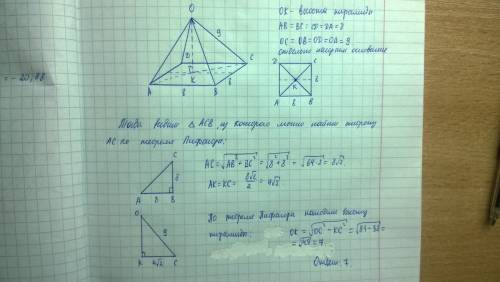 = - 20,48
O
9
D
C
K
8
A
8
B
OK - высота пирамиды
AB = BC = CD = DA = 8
OC = OB = OD = OA = 9
отдельно рисуем основание
D
C
8
K
A
8
B
Тогда видим △ ACB, из которого можно найти сторону
AC по теореме Пифагора:
C
8
A
8
B
AC = √AB² + BC² = √8² + 8² = √64·2 = 8√2
AK = KC = 8√2 / 2 = 4√2
O
9
K
4√2
C
По теореме Пифагора находим высоту
пирамиды: OK = √OC² - KC² = √81 - 32 =
= √49 = 7.
Ответ: 7.